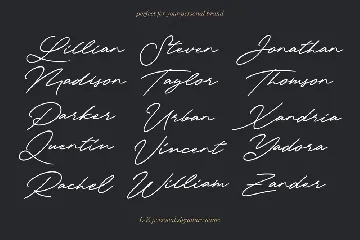 perfect for your personal brand
Lillian Steven Jonathan
Madison Taylor Thomson
Parker Urban Xandria
Quentin Vincent Yadora
Rachel William Zander